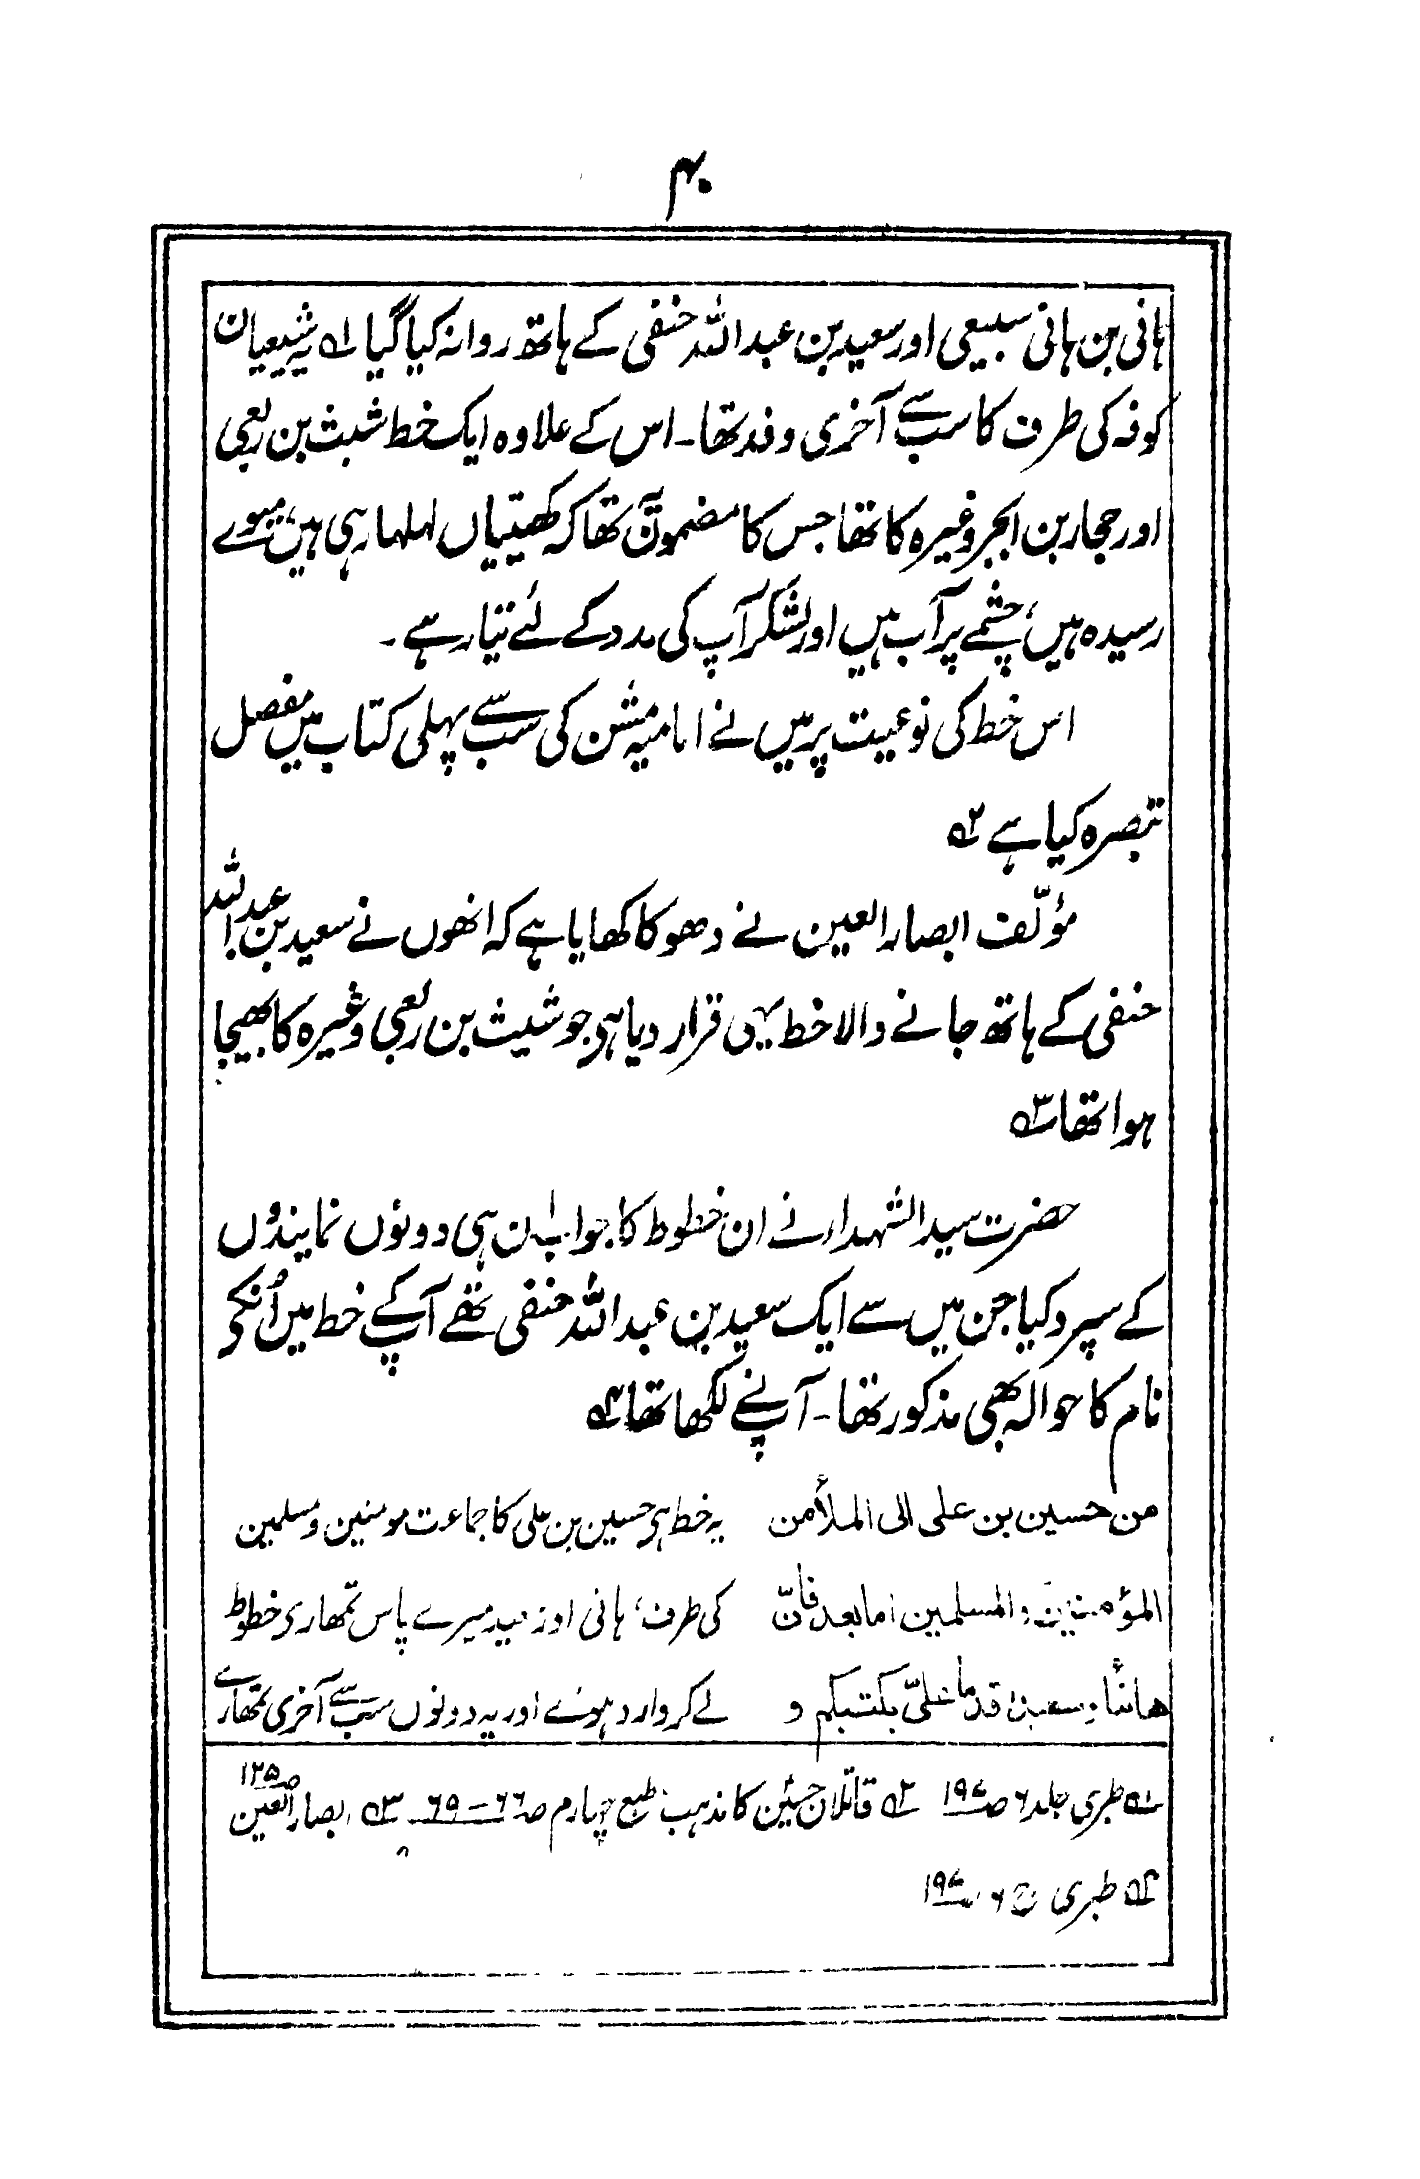 ۴۰
ہانی بن ہانی سبیعی اور سعید بن عبداللہ حنفی کے ہاتھ روانہ کیا گیا ۱؎ یہ شیعیان
کوفہ کی طرف کا سب سے آخری وفد تھا۔ اس کے علاوہ ایک خط شبث بن ربعی
اور حجار بن ابجر وغیرہ کا تھا جس کا مضمون یہ تھا کہ کھیتیاں لہلہا رہی ہیں، میوے
رسیدہ ہیں، چشمے پر آب ہیں اور لشکر آپ کی مدد کے لئے تیار ہے۔
اس خط کی نوعیت پر میں نے امامیہ مشن کی سب سے پہلی کتاب میں مفصل
تبصرہ کیا ہے ۲؎
مؤلّف ابصار العین نے دھوکا کھایا ہے کہ انھوں نے سعید بن عبداللہ
حنفی کے ہاتھ جانے والا خط یہی قرار دیا ہی جو شیث بن ربعی وغیرہ کا بھیجا
ہوا تھا ۳؎
حضرت سید الشہداء نے ان خطوط کا جواب ان ہی دونوں نمایندوں
کے سپرد کیا جن میں سے ایک سعید بن عبداللہ حنفی تھے آپ کے خط میں اُنکے
نام کا حوالہ بھی مذکور تھا۔ آپ نے لکھا تھا ۴؎
من حسین بن علی الی الملأ من یہ خط ہی حسین بن علی کا جماعت مومنین و مسلمین
المؤمنین والمسلمین اما بعد فانّ کی طرف، ہانی اور سعید میرے پاس تمھاری خطوط
ھانئا وسعیدا قدما علیّ بکتبکم و لے کر وارد ہوئے اور یہ دونوں سب سے آخری تمھارے
۱؎ طبری جلد ۶ ص ۱۹۷ ۲؎ قاتلان حسینؑ کا مذہب طبع چہارم ص ۶۶ – ۶۹ ۳؎ ابصار العین ص ۱۲۵
۴؎ طبری ج ۶ ص ۱۹۷